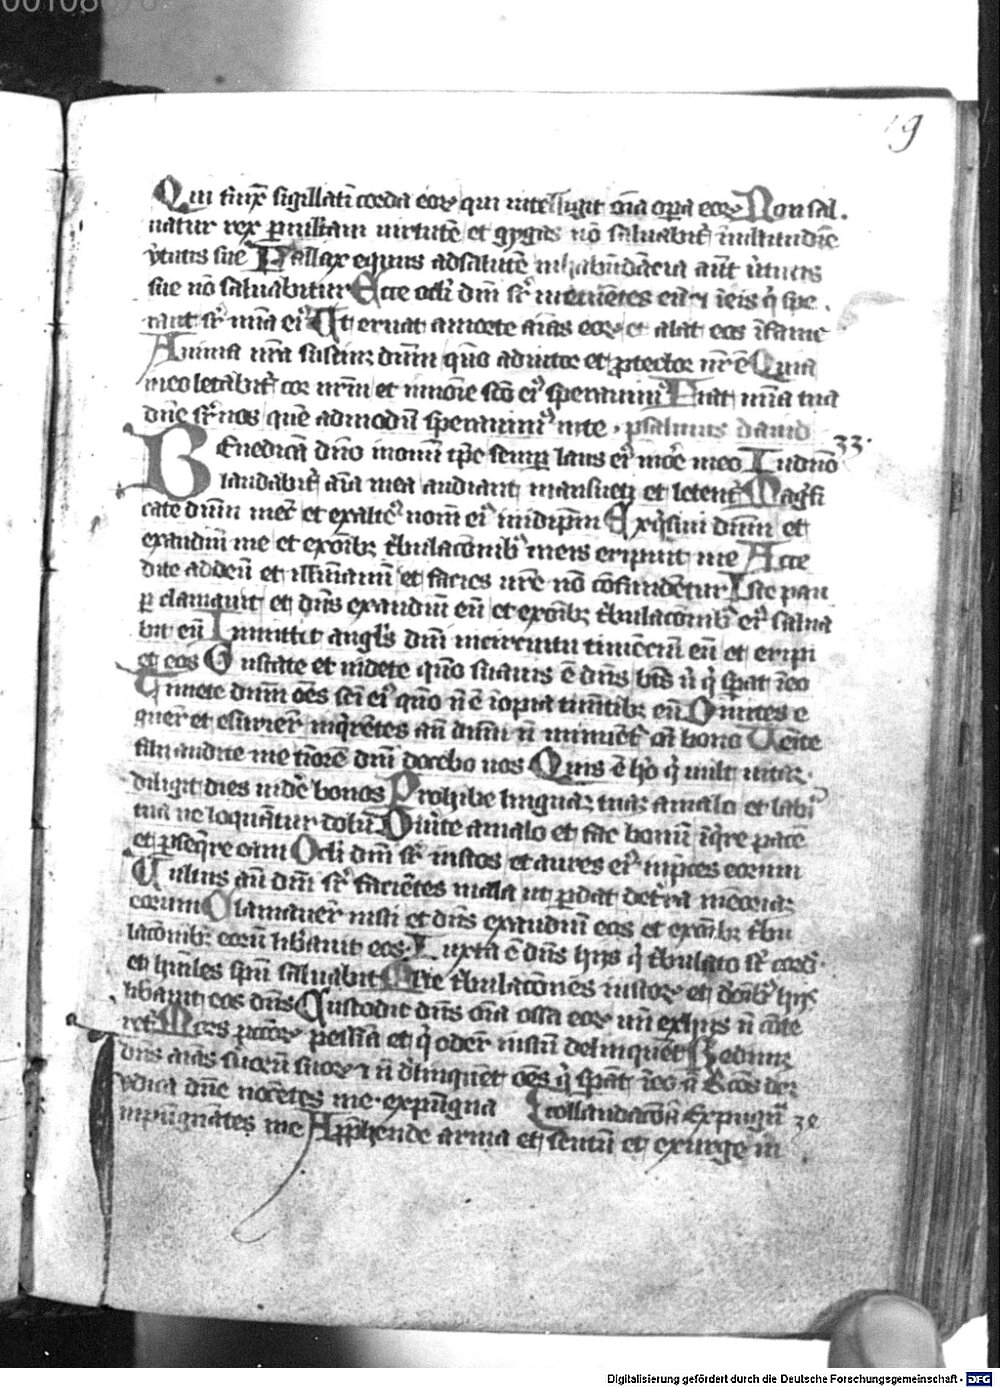 00108070
19
Qui finxͭ sigillatī corda eoꝝ qui intelligit oīa oꝑa eoꝝ Non sal.
uatur rex ꝑ multam uirtutē et gygas nō saluabit᷑ ī multitudīe
v̓tutis sue Fallax equus ad salutē in habūdācia aut̄ v̓tutis
sue nō saluabitur Ecce ocl̓i dn̄i sr̄ metuētes eū ⁊ ī eis q̓ spe.
rant sr̄ mīa eiꝰ Ut eruat a morte aīas eoꝝ et alat eos ī fame
Anima nr̄a sustinꝫ dnm̄ qm̄o adiutor et ꝓtector nr̄ ē Quia
in eo letabit᷑ cor nr̄m et in noīe scō eiꝰ sperauimꝰ Fiat mīa tua
dn̄e sr̄ nos quē admodū sperauimꝰ in te . psalmus dauid
Benedicā dn̄o in omī tp̄e semꝑ laus eiꝰ in oꝛe meo In dn̄o 33.
laudabit᷑ aīa mea audiant mansueti et letent᷑ Mag̓fi
cate dnm̄ mecū et exaltemꝰ nomē eiꝰ in idip̄m Exq̓siui dnm̄ et
exaudiuit me et ex oīb; t̓bulacōnibꝰ meis eripuit me Acce
dite ad deū et illumīam̄ī et facies ur̄e nō cōfundētur Iste pau
ꝑ clamauit et dn̄s exaudiuit eū et ex oīb; t̓bulacōnibꝰ eiꝰ salua
bit eū Inmittit angl̓s dn̄i in circuitu timēciū eū et eripi
et eos Gustate et uidete qm̄o suauis ē dn̄s bt̄s uir q̓ spat̄ ī eo
Timete dnm̄ oēs sc̄i eiꝰ qm̄o nō ē īopia timētib; eū Diuites e
guer̄t et esurier̄t inq̓rētes aut̄ dnm̄ nō minuēt᷑ oī bono Uenite
filii audite me timorē dn̄i docebo uos Quis ē hō q̓ uult uitā.
diligit dies uidē bonos Prohibe linguā tuā a malo et labiꝰ
tua ne loquātur dolū Diūte a malo et fac bonū īq̓re pacē
et ꝑseq̓re eam Ocl̓i dn̄i sr̄ iustos et aures eiꝰ in p̄ces eorum
Uultus aut̄ dn̄i sr̄ faciētes mala ut ꝑdat de t̓ra memoriā
eorum Clamauer̄ iusti et dn̄s exaudiuit eos et ex oīb; t̓bu
lacōnib; eorū lib̓auit eos . Iuxta ē dn̄s hiis q̓ t̓bulato sr̄ cordē
et humiles spū saluabit Multe t̓bulacōnes iustoꝝ et de oībꝰ hiis
lib̓auit eos dn̄s Custodit dn̄s oīa ossa eoꝝ unū ex hiis nō cōte
ret᷑ Mors pcc̄oꝝ pessīa et q̓ oder̄t iustū delinquēt Redimꝫ
dn̄s aīas seruoꝝ suoꝝ ⁊ nō delinquēt oēs q̓ spāt ī eo
Iudica dn̄e nocētes me . expugna
inpugnātes me Apphende arma et scutū et exurge in
Digitalisierung gefördert durch die Deutsche Forschungsgemeinschaft - DFG